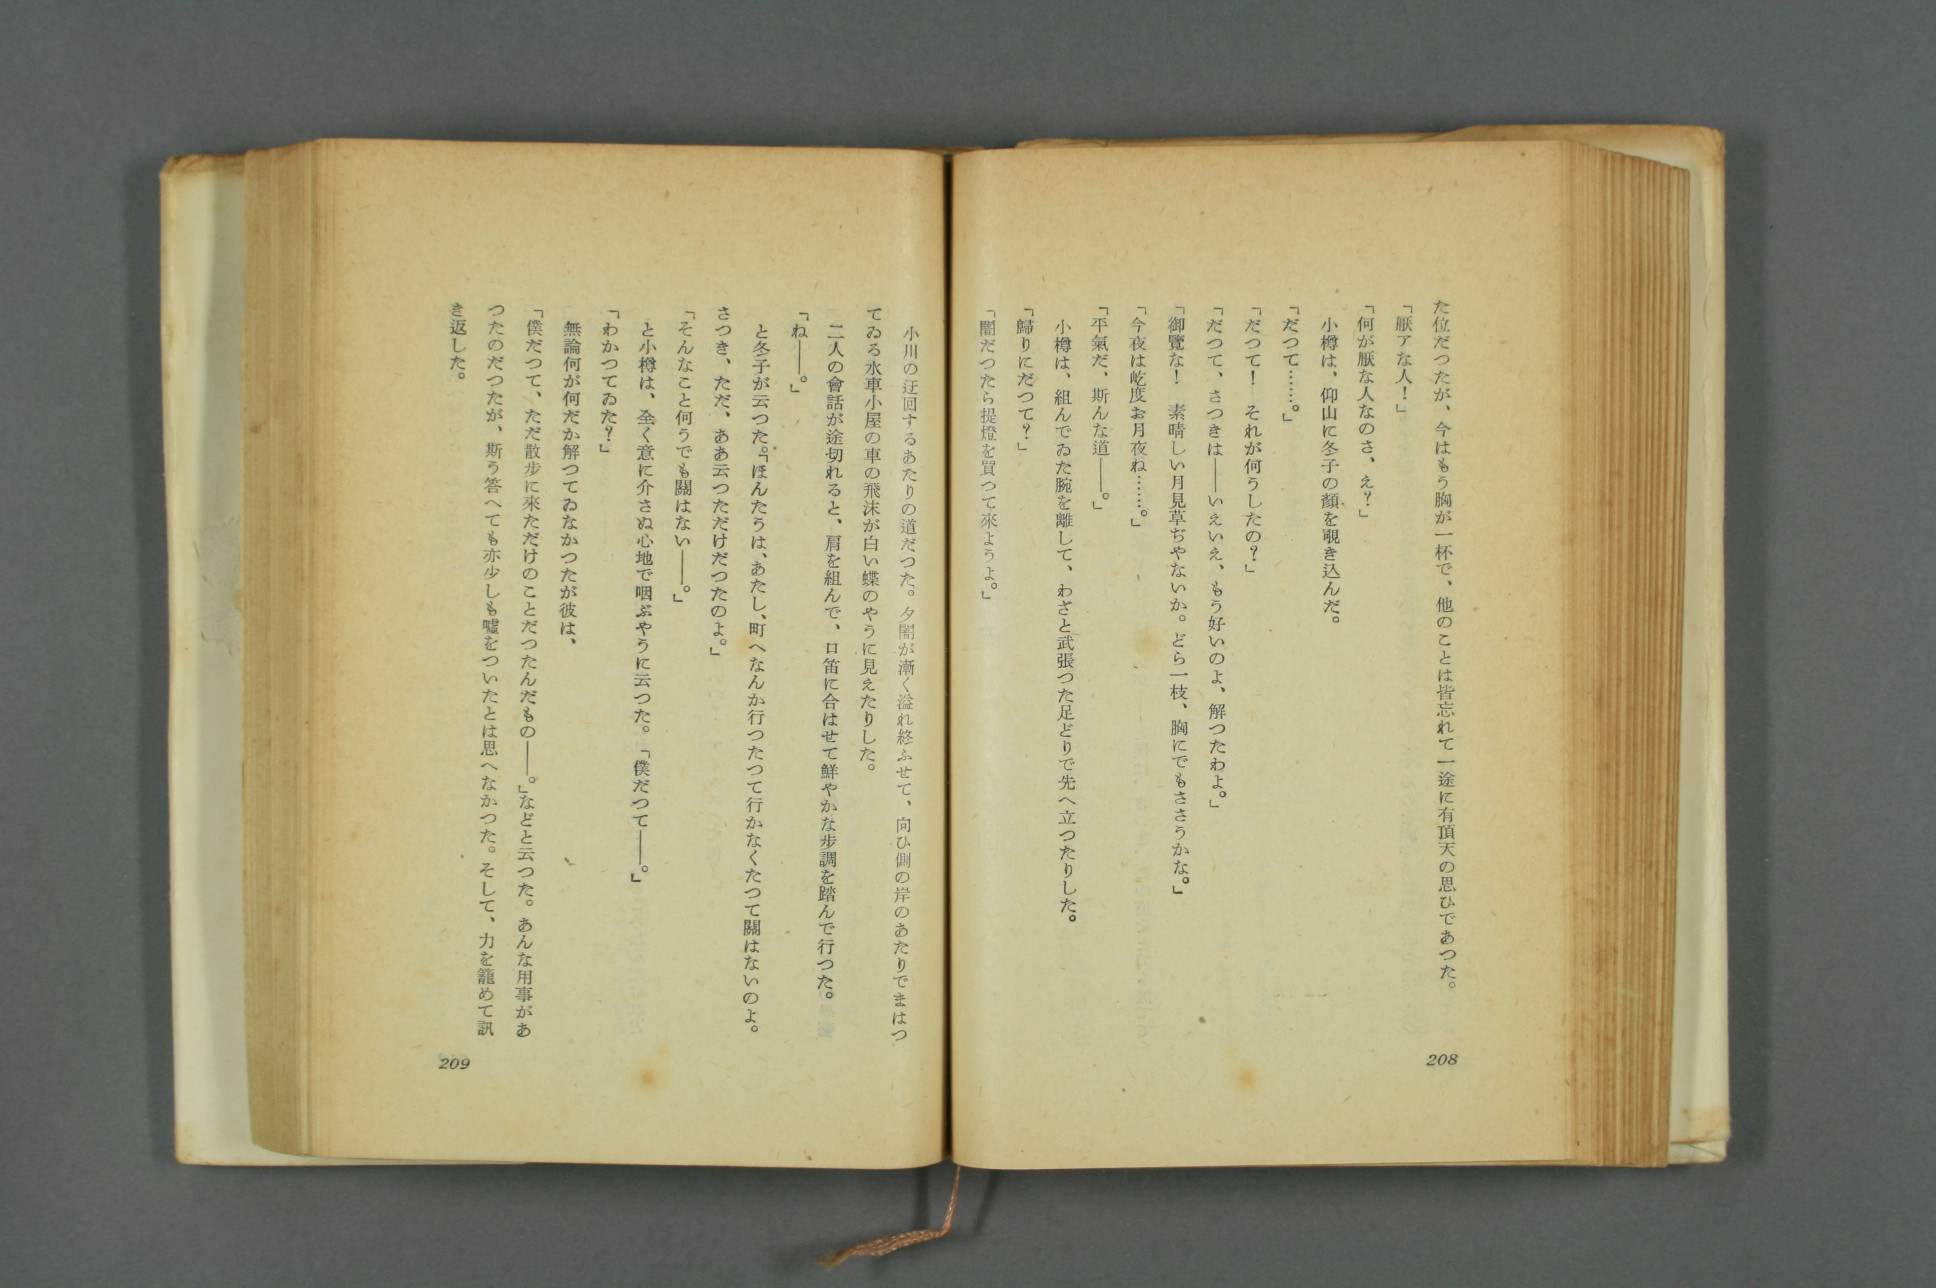 た位だつたが、今はもう胸が一杯で、他のことは皆忘れて一途に有頂天の思ひであつた。
「厭アな人！」
「何が厭な人なのさ、え？」
小樽は、仰山に冬子の顏を覗き込んだ。
「だつて……。」
「だつて！　それが何うしたの？」
「だつて、さつきは――いえいえ、もう好いのよ、解つたわよ。」
「御覽な！　素晴しい月見草ぢやないか。どら一枝、胸にでもささうかな。」
「今夜は屹度お月夜ね……。」
「平氣だ、斯んな道――。」
小樽は、組んでゐた腕を離して、わざと武張つた足どりで先へ立つたりした。
「歸りにだつて？」
「闇だつたら提燈を買つて來ようよ。」
208
小川の迂回するあたりの道だつた。夕闇が漸く溢れ終ふせて、向ひ側の岸のあたりでまはつ
てゐる水車小屋の車の飛沫が白い蝶のやうに見えたりした。
二人の會話が途切れると、肩を組んで、口笛に合はせて鮮やかな歩調を踏んで行つた。
「ね――。」
と冬子が云つた。「ほんたうは、あたし、町へなんか行つたつて行かなくたつて關はないのよ。
さつき、ただ、ああ云つただけだつたのよ。」
「そんなこと何うでも關はない――。」
と小樽は、全く意に介さぬ心地で咽ぶやうに云つた。「僕だつて――。」
「わかつてゐた？」
無論何が何だか解つてゐなかつたが彼は、
「僕だつて、ただ散歩に來ただけのことだつたんだもの――。」などと云つた。あんな用事があ
つたのだつたが、斯う答へても亦少しも噓をついたとは思へなかつた。そして、力を籠めて訊
き返した。
209